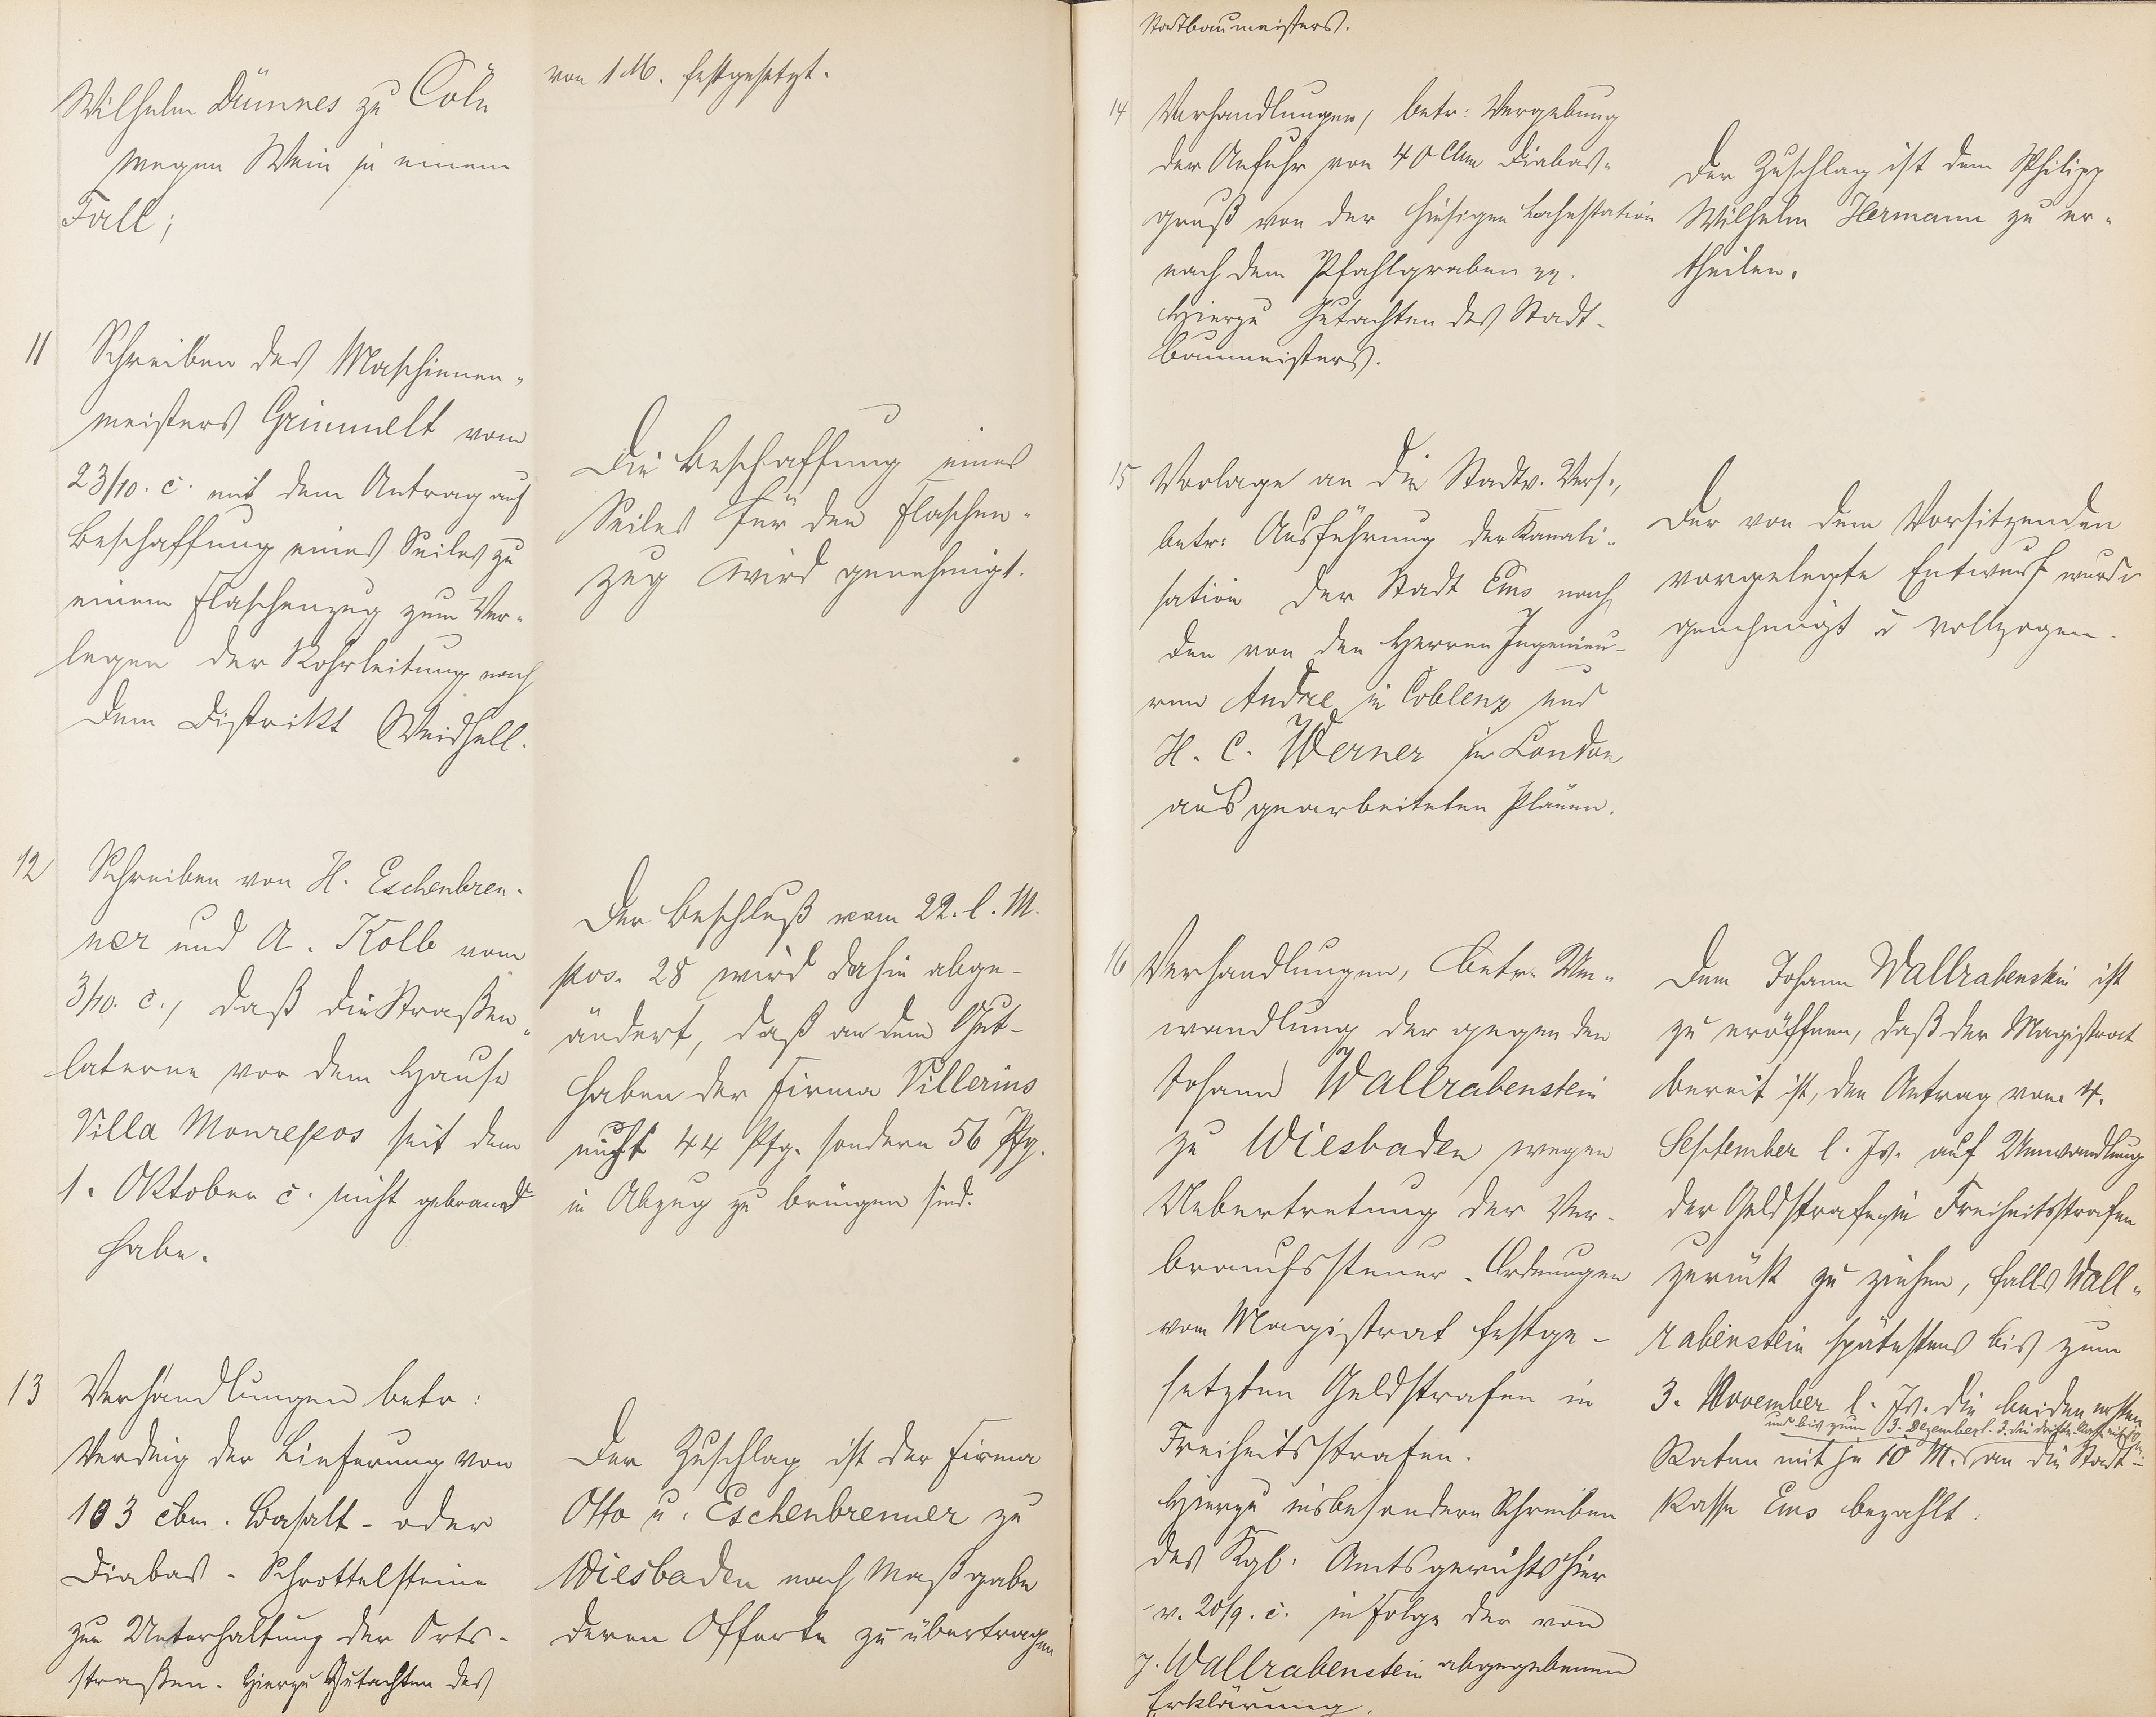 Wilhelm Dünnes zu Cöln
wegen Wein in einem
Fall;
von 1 M. festgesetzt.
11 Schreiben des Maschinen-
meisters Grimmelt vom
23/10. c. mit dem Antrag auf
Beschaffung eines Seiles zu
einem Flaschenzug zum Ver-
legen der Rohrleitung nach
dem Distrikt Weidhell.
Die Beschaffung eines
Seiles für den Flaschen-
zug wird genehmigt.
12 Schreiben von H. Eschenbren-
ner und A. Kolb vom
3/10. c., daß die Straßen-
laterne vor dem Hause
Villa Monrepos seit dem
1. Oktober c. nicht gebrannt
habe.
Der Beschluß vom 22. l. M.
pos. 28 wird dahin abge-
ändert, daß an dem Gut-
haben der Firma Villerius
nicht 44 Pfg. sondern 56 Pfg.
in Abzug zu bringen sind.
13 Verhandlungen betr:
Verding der Lieferung von
103 cbm. Basalt- oder
Diabas-Schrottelsteine
zur Unterhaltung der Orts-
straßen. Hierzu Gutachten des
Der Zuschlag ist der Firma
Otto u. Eschenbrenner zu
Wiesbaden nach Maßgabe
deren Offerte zu übertragen
Stadtbaumeisters.
14 Verhandlungen, betr: Vergebung
der Anfuhr von 40 Cbm Diabas-
gruß von der hiesigen Bahnstation
nach dem Pfahlgraben pp.
Hierzu Gutachten des Stadt-
baumeisters.
Der Zuschlag ist dem Philipp
Wilhelm Hermann zu er-
theilen.
15 Vorlage an die Stadtv. Vers.,
betr. Ausführung der Kanali-
sation der Stadt Ems nach
den von den Herren Ingenieu-
ren Andre in Coblenz und
H. C. Werner in London
ausgearbeiteten Plänen.
Der von dem Vorsitzenden
vorgelegte Entwurf wurde
genehmigt u vollzogen.
16 Verhandlungen, betr. Um-
wandlung der gegen den
Johann Wallrabenstein
zu Wiesbaden wegen
Uebertretung der Ver-
brauchssteuer-Ordnungen
vom Magistrat festge-
setzten Geldstrafen in
Freiheitsstrafen.
Hierzu insbesondere Schreiben
des Kgl. Amtsgerichts hier
v. 20/9. c. in Folge der von
J. Wallrabenstein abgegebenen
Erklärung.
Dem Johann Wallrabenstein ist
zu eröffnen, daß der Magistrat
bereit ist, den Antrag vom 4.
September l. Js. auf Umwandlung
der Geldstrafe in Freiheitsstrafen
zurück zu ziehen, falls Wall-
rabenstein spätestens bis zum
3. November l. Js. die beiden ersten
und bis zum 3. Dezember l. J. die dritte Rate mit
Raten mit je 10 M. an die Stadt-
Kasse Ems bezahlt.